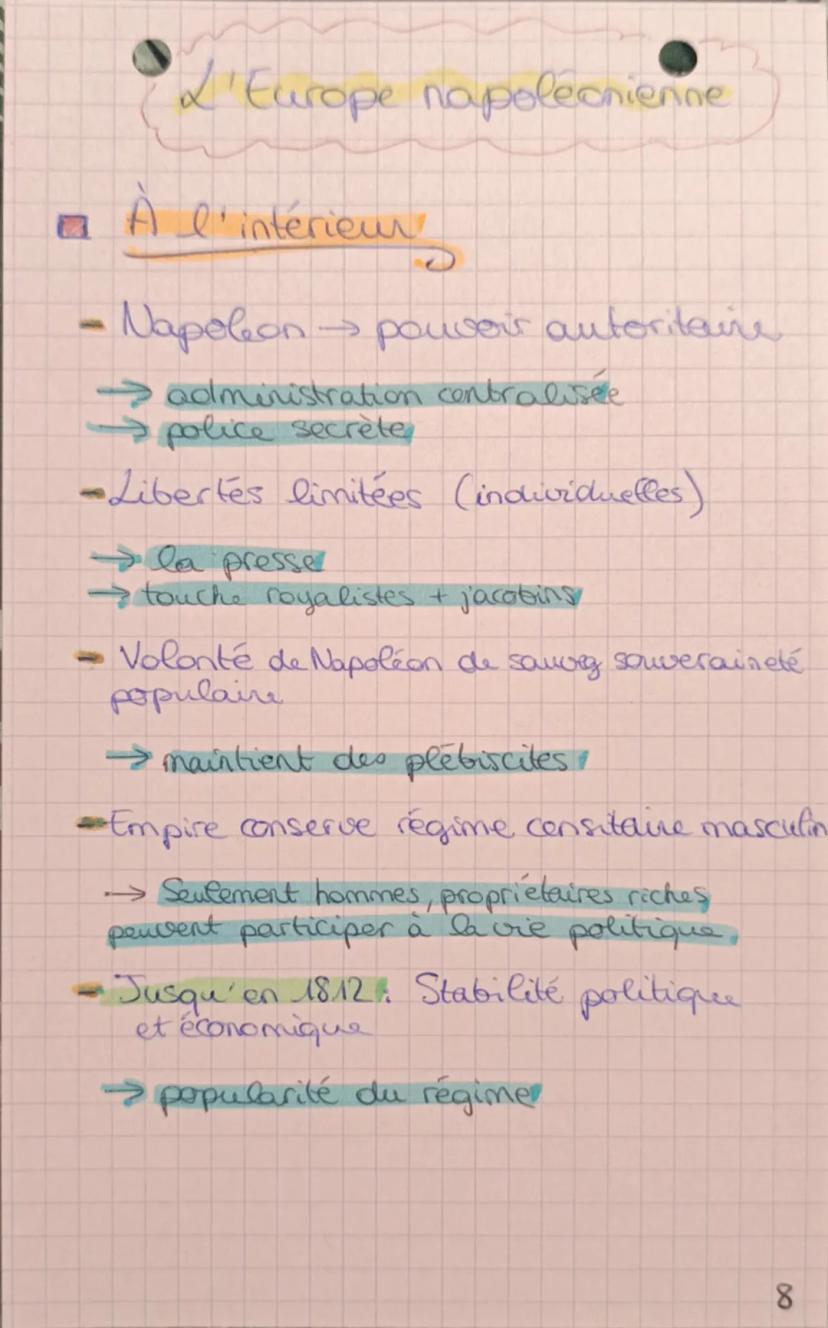 L'Europe napoléonienne
À l'intérieur
- Napoléon → pouvoir autoritaire
→ administration contralisée
→ police secrète
- Libertés limitées (individuelles)
→ la presse
→ touche royalistes + jacobins
- Volonté de Napoléon de sauvg souveraineté
populaire
→ maintient des plébiscites
- Empire conserve régime censitaire masculin
→ Seulement hommes, propriétaires riches
peuvent participer à la vie politique.
- Jusqu'en 1812 : Stabilité politique
et économique
→ popularité du régime
8